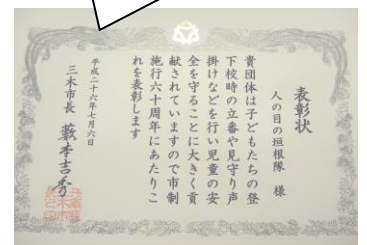 表彰状
人の目の垣根隊 様
貴団体は子どもたちの登
下校時の立番や見守り声
掛けなどを行い児童の安
全を守ることに大きく貢
献されていますので市制
施行六十周年にあたりこ
れを表彰します
平成二十六年七月六日
三木市長 藪本吉秀